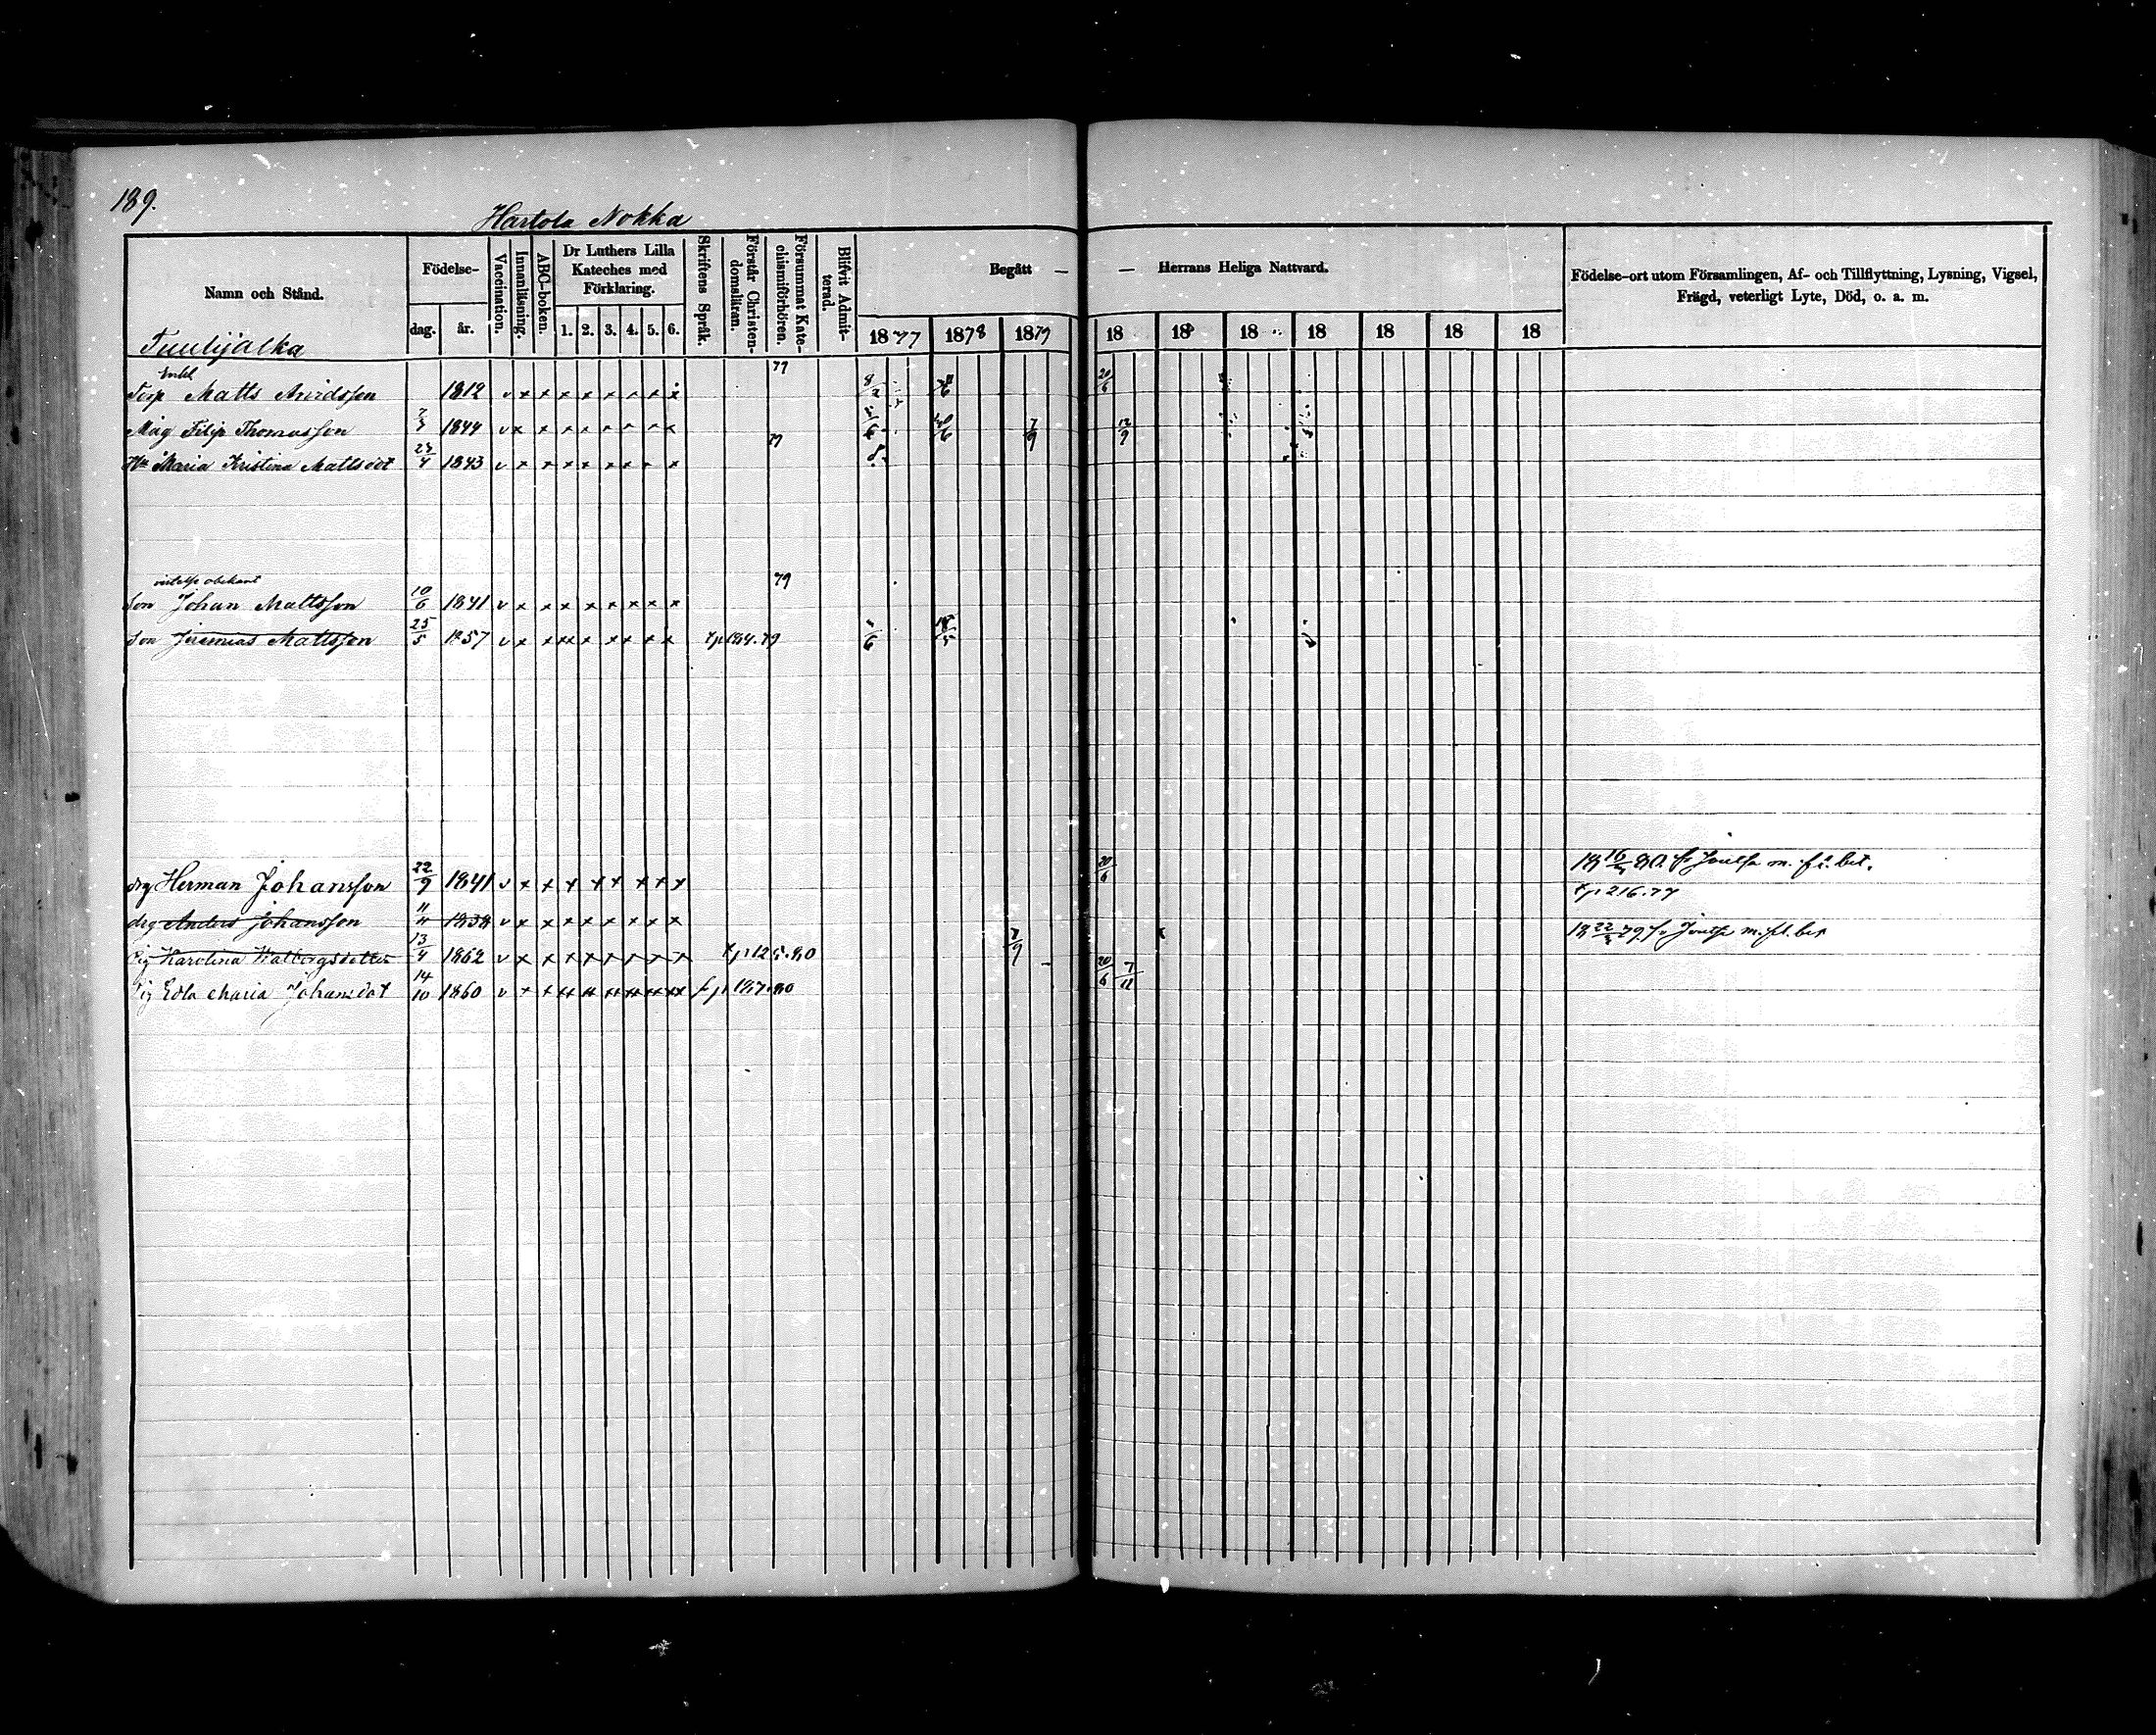 189.
Hartola Nokka
Namn och Stånd.
Födelse-
dag. år.
Vaccination.
Innanläsning.
ABC-boken.
Dr Luthers Lilla
Kateches med
Förklaring.
1. 2. 3. 4. 5. 6.
Skriftens Språk.
Förstår Christen-
domsläran.
Försummat Kate-
chismiförhören.
Blifvit Admit-
terad.
Begått — — Herrans Heliga Nattvard.
1877 1878 1879 18 18 18 18 18 18 18
Födelse-ort utom Församlingen, Af- och Tillflyttning, Lysning, Vigsel,
Frägd, veterligt Lyte, Död, o. a. m.
Tuulijälka
Enkl
Torp Matts Arvidsson 1812 v x x x x x x x x 79 20/6
Måg Filip Thomasson 1844 v x x x x x x x x 7/9 12/9
Hu Maria Kristina Mattsdot 23/4 1843 v x x x x x x x x 79
vistelse obekant
Son Johan Mattsson 10/6 1841 v x x x x x x x x 79
Son Jeremias Mattsson 25/5 1857 v x x xx x x x x x 79
drg Herman Johansson 22/9 1841 v x x x x x x x x 20/6 80 fr Joutsa m. fl. bet.
drg Anders Johansson 11/11 1838 v x x x x x x x x tp 216.77
Pig Karolina Walborgsdotter 13/4 1862 v x x x x x x x x tp 125.80 7/9 22/3 79 fr Joutsa m. fl. bet
Pig Edla Maria Johansdot 14/10 1860 v x x xx xx xx xx xx xx fp 187.80 20/6 7/11